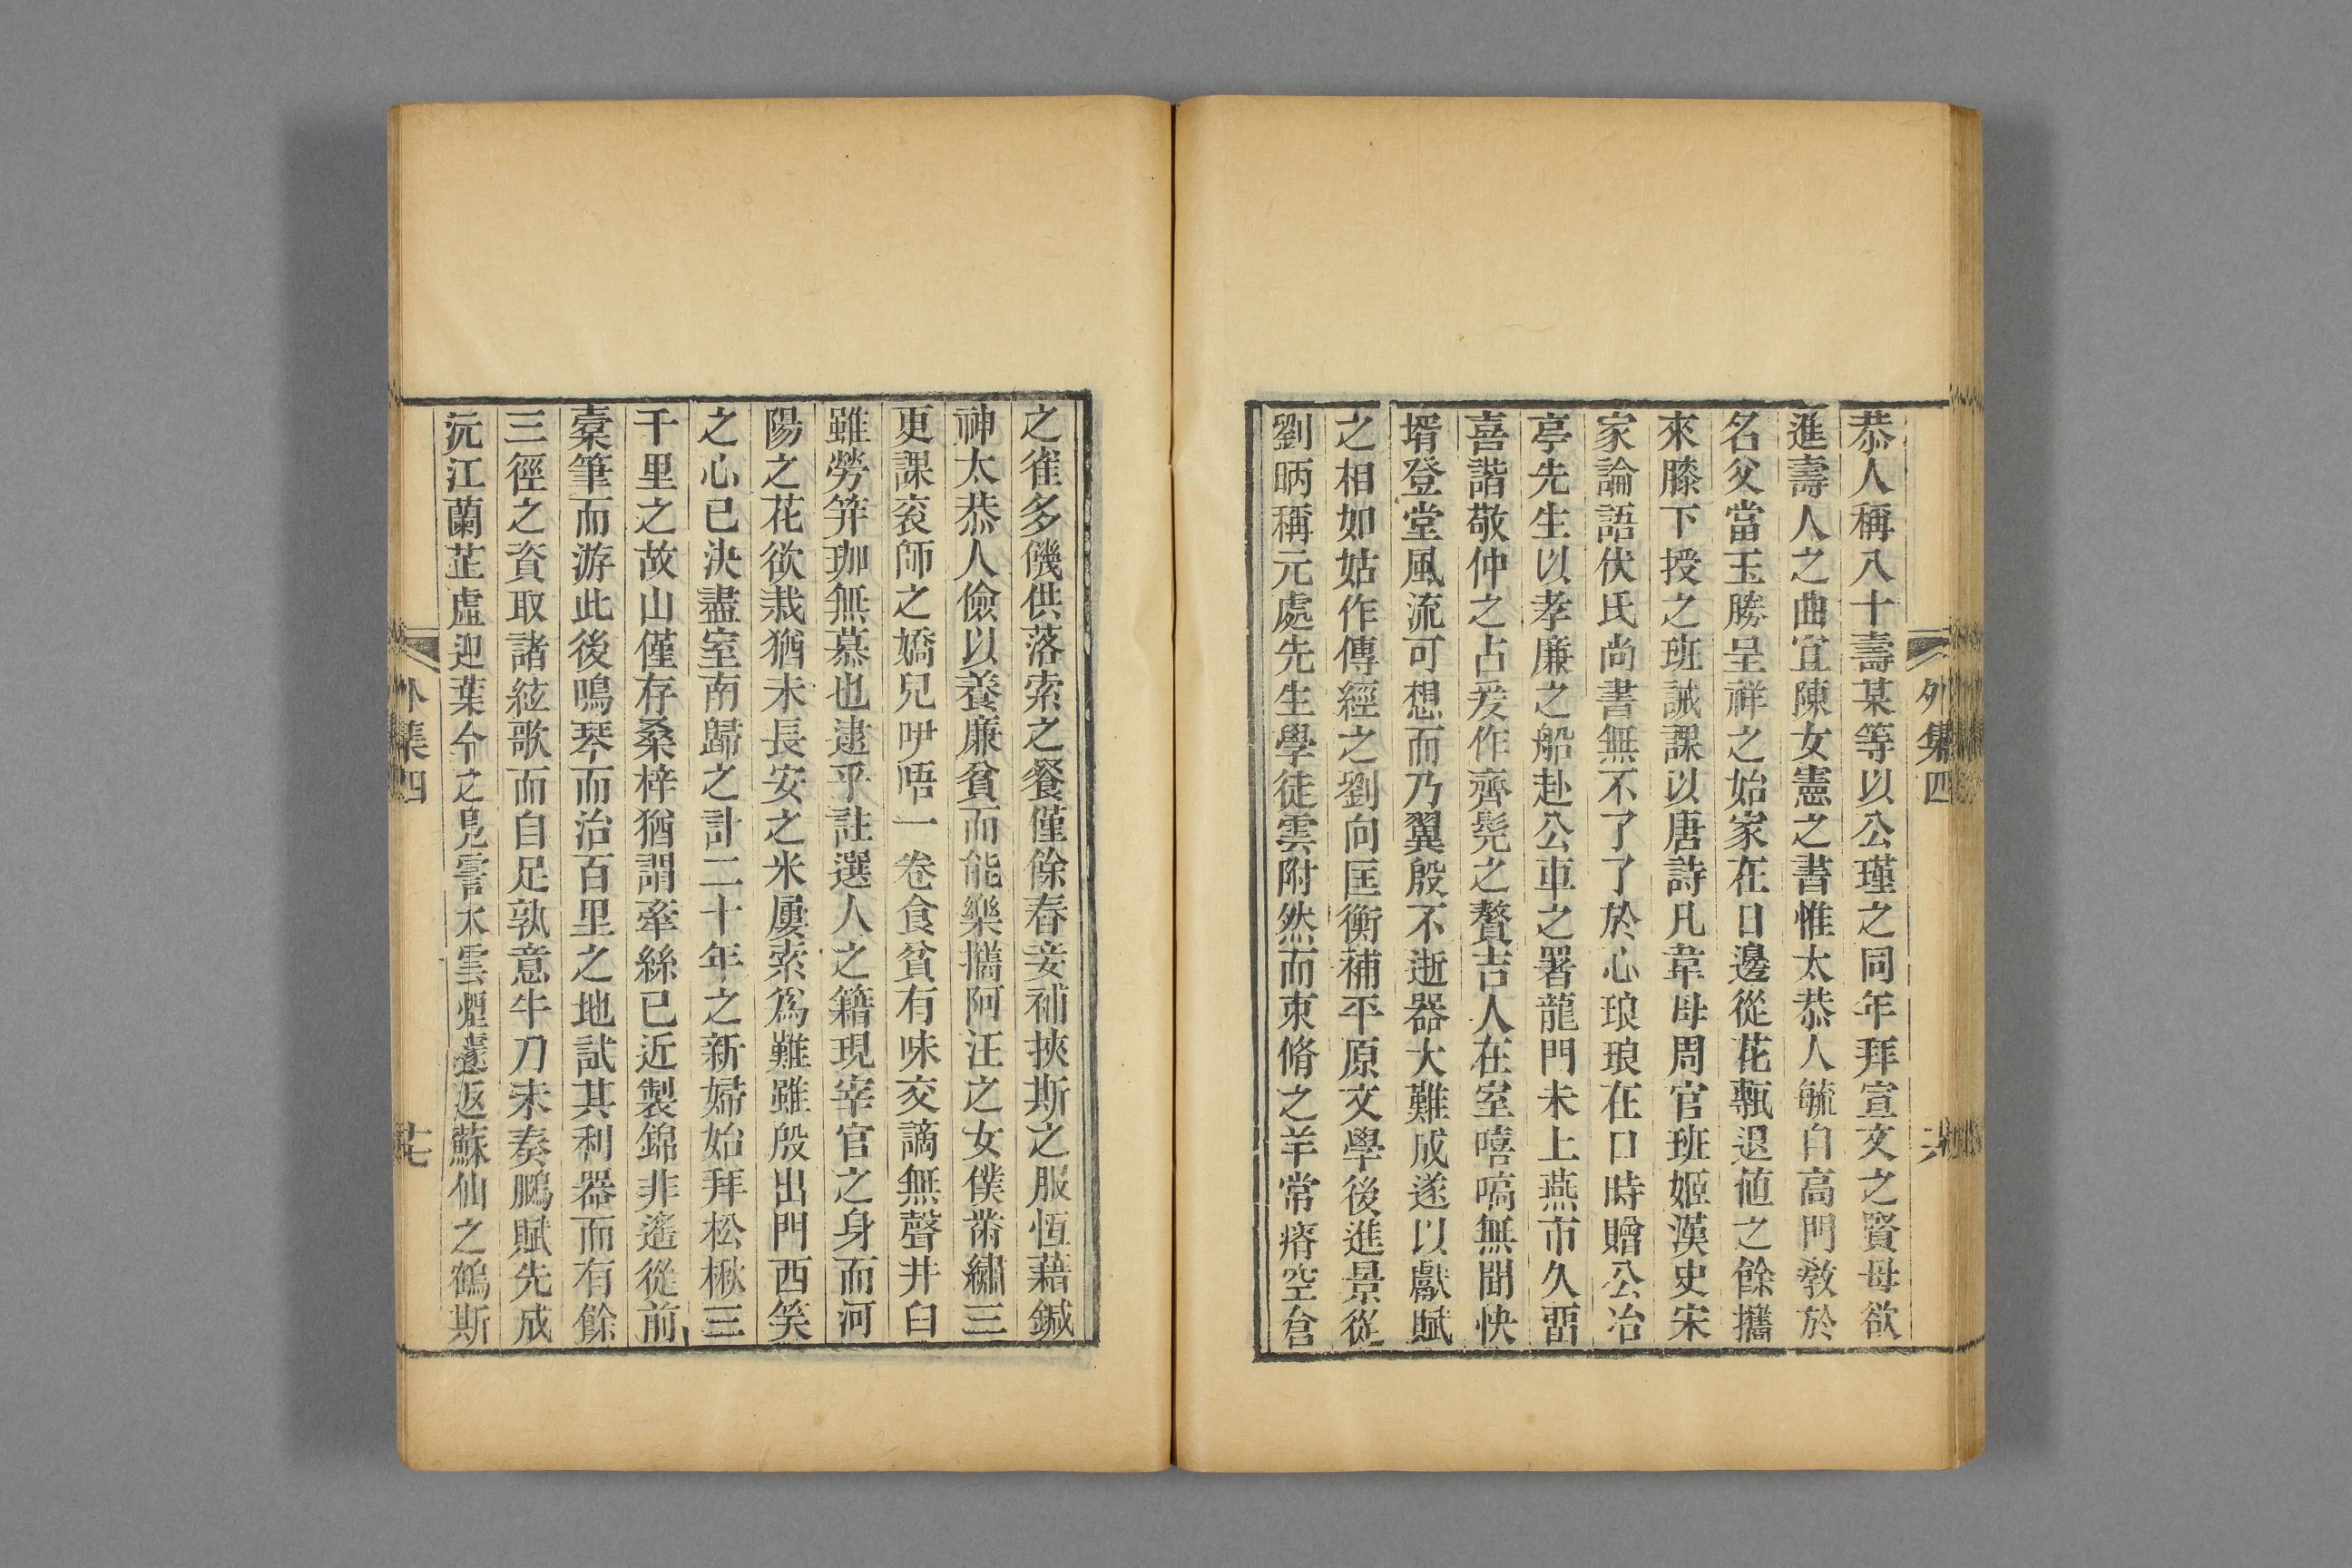 恭人稱八十壽某等以公瑾之同年拜宣文之賢母欲
進壽人之曲宜陳女憲之書惟太恭人毓自高門敎於
名父當玉勝呈祥之始家在日邊從花甎退値之餘攜
來膝下授之班誡課以唐詩凡韋母周官班姬漢史宋
家論語伏氏尚書無不了了於心琅琅在口時贈公冶
亭先生以孝廉之船赴公車之署龍門未上燕市久畱
喜諧敬仲之占爰作齊髡之贅吉人在室嘻嗃無聞快
壻登堂風流可想而乃翼殷不逝器大難成遂以獻賦
之相如姑作傳經之劉向匡衡補平原文學後進景從
劉昞稱元處先生學徒雲附然而束脩之羊常瘠空倉
外集四
六
之雀多饑供落索之餐僅餘舂妾補挾斯之服恆藉鍼
神太恭人儉以養廉貧而能樂攜阿汪之女僕黹繡三
更課衮師之嬌兒吚唔一卷食貧有味交謫無聲井臼
雖勞笄珈無慕也逮乎註選人之籍現宰官之身而河
陽之花欲栽猶未長安之米屢索爲難雖殷出門西笑
之心已決盡室南歸之計二十年之新婦始拜松楸三
千里之故山僅存桑梓猶謂牽絲已近製錦非遙從前
橐筆而游此後鳴琴而治百里之地試其利器而有餘
三徑之資取諸絃歌而自足孰意牛刀未奏鵩賦先成
沅江蘭芷虛迎葉令之鳧霅水雲煙遽返蘇仙之鶴斯
外集四
七